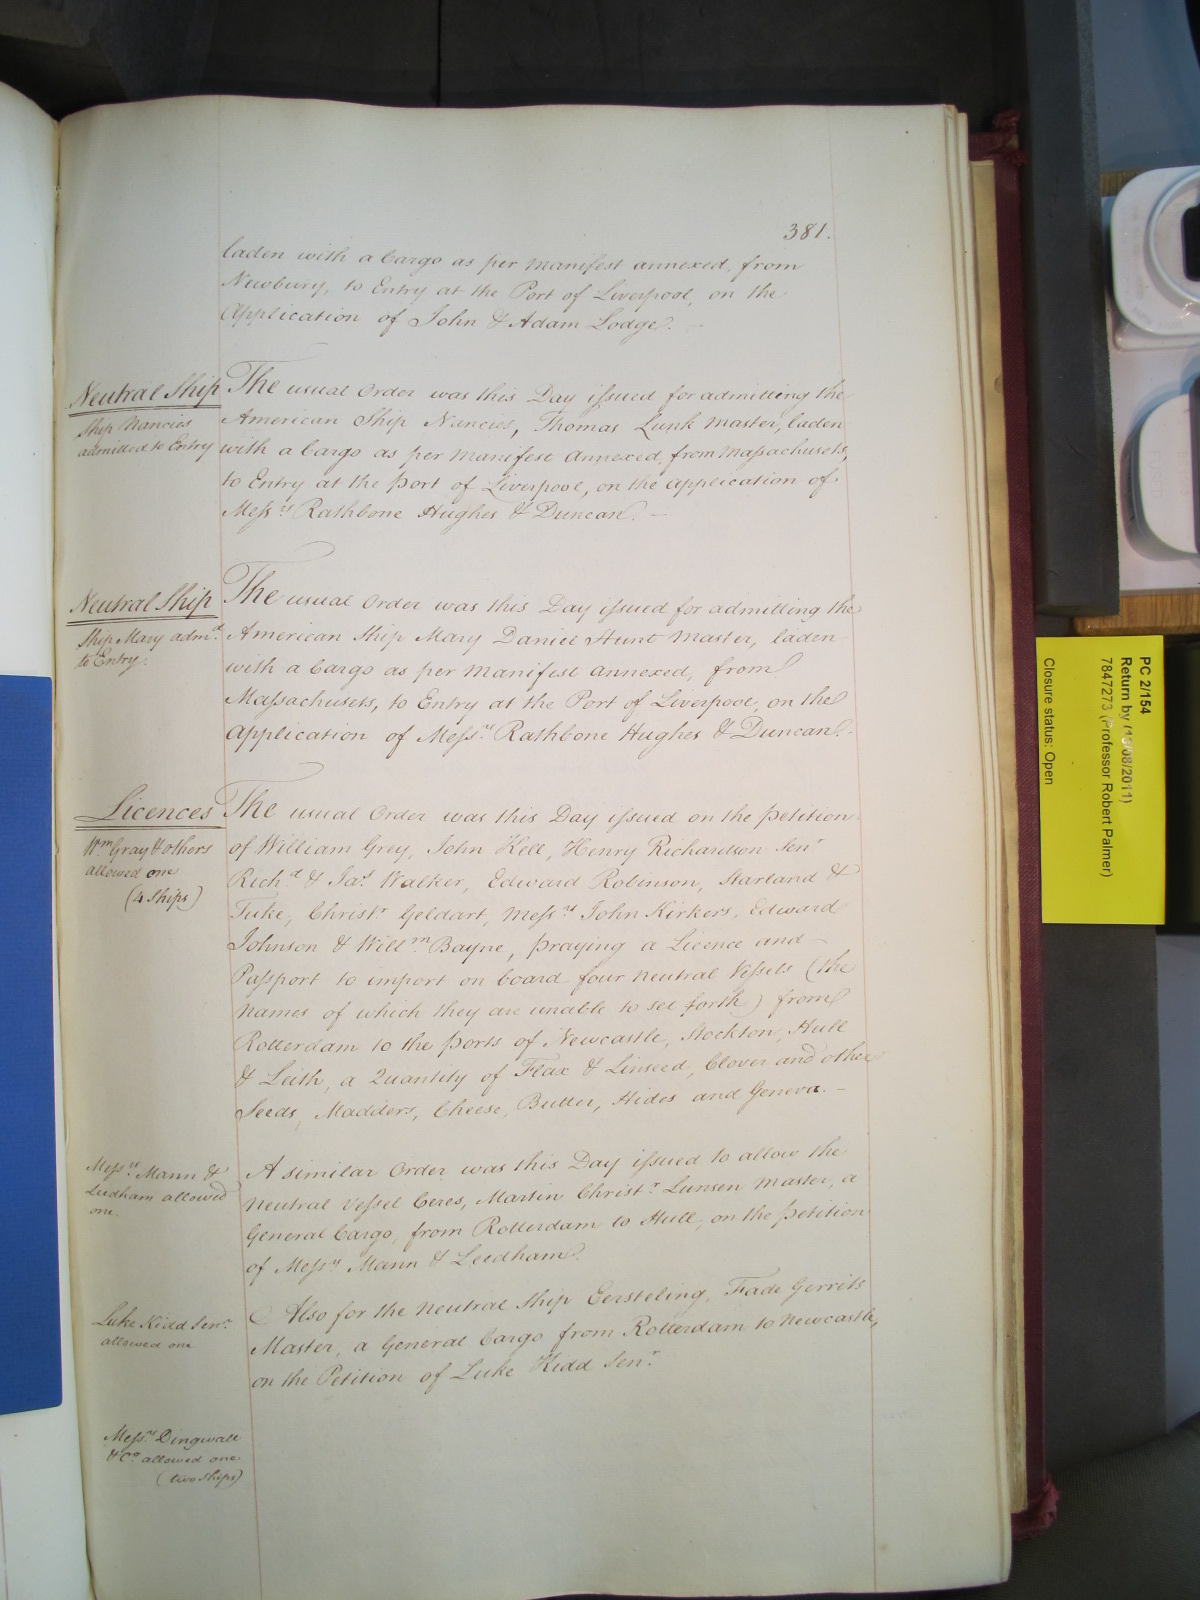 381.
laden with a Cargo as per Manifest annexed, from
Newbury, to Entry at the Port of Liverpool, on the
Application of John & Adam Lodge.
Neutral Ship
Ship Nancies
admitted to Entry
The usual Order was this Day issued for admitting the
American Ship Nancies, Thomas Lunk Master, laden
with a Cargo as per Manifest Annexed, from Massachusets,
to Entry at the Port of Liverpool, on the Application of
Messrs Rathbone Hughes & Duncan.
Neutral Ship
Ship Mary admd
to Entry.
The usual Order was this Day issued for admitting the
American Ship Mary Daniel Hunt Master, laden
with a Cargo as per Manifest Annexed, from
Massachusets, to Entry at the Port of Liverpool, on the
Application of Messrs Rathbone Hughes & Duncan.
Licences
Wm Gray & others
allowed one
(4 Ships)
The usual Order was this Day issued on the Petition
of William Grey, John Hell, Henry Richardson Senr
Richd & Jas Walker, Edward Robinson, Starland &
Tuke, Christr Geldart, Messrs John Kirkers, Edward
Johnson & Willm Bayne, praying a Licence and
Passport to import on board four neutral Vessels (the
names of which they are unable to set forth) from
Rotterdam to the Ports of Newcastle, Stockton, Hull
& Leith, a Quantity of Flax & Linseed, Clover and other
Seeds, Madders, Cheese, Butter, Hides and Geneva.
Messrs Mann &
Leedham allowed
one.
A similar Order was this Day issued to allow the
Neutral Vessel Ceres, Martin Christr Lunsen Master, a
General Cargo, from Rotterdam to Hull, on the Petition
of Messrs Mann & Leedham.
Luke Kidd Senr
allowed one
Also for the Neutral Ship Eersteling, Fade Gerrits
Master, a General Cargo from Rotterdam to Newcastle,
on the Petition of Luke Kidd Senr
Messrs Dingwall
& Co allowed one
(two Ships)
PC 2/154
Return by (13/08/2011)
7847273 (Professor Robert Palmer)
Closure status: Open